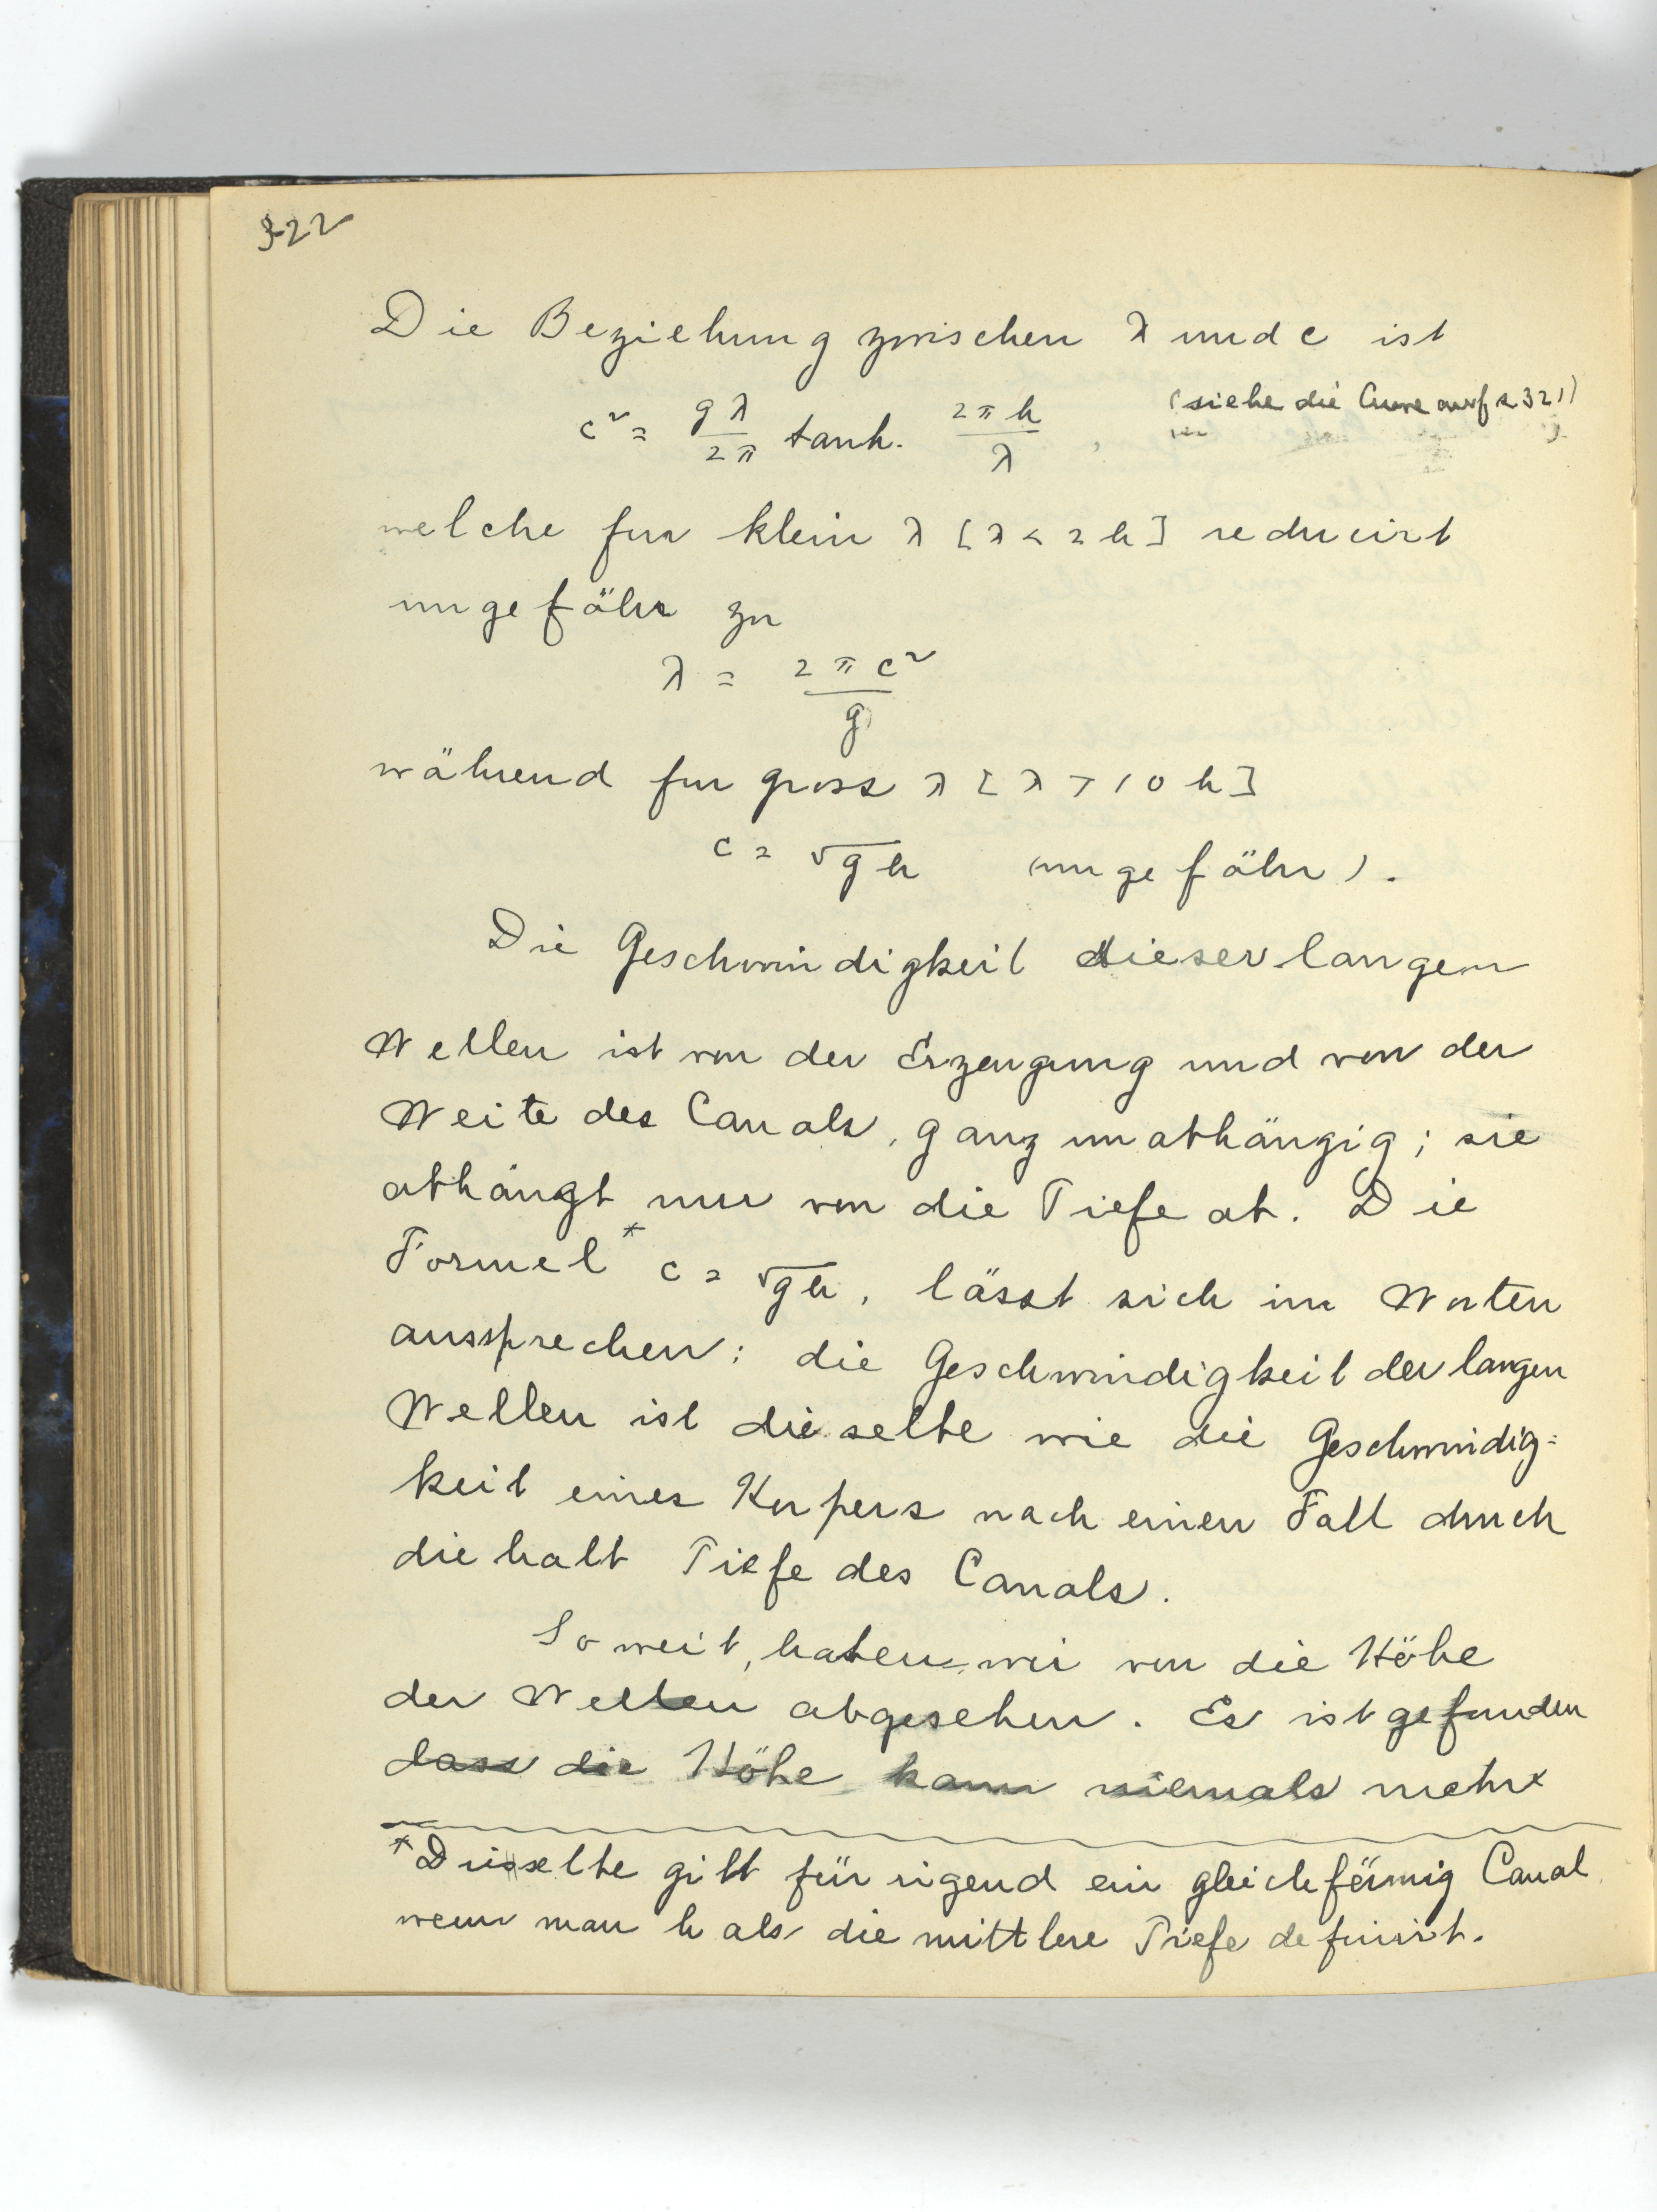 322
Die Beziehung zwischen λ und c ist
c² = gλ/2π tanh. 2πh/λ , (siehe die Curve auf s 321)
welche fur klein λ [λ < 2h] reducirt
ungefähr zu
λ = 2πc²/g
während fur gross λ [λ > 10h]
c = √gh (ungefähr).
Die Geschwindigkeit dieser langen
Wellen ist von der Erzeugung und von der
Weite des Canals, ganz unabhängig; sie
abhängt nur von die Tiefe ab. Die
Formel* c = √gh, lässt sich in Worten
aussprechen: die Geschwindigkeit der langen
Wellen ist dieselbe wie die Geschwindig=
keit eines Korpers nach einen Fall durch
die halb Tiefe des Canals.
So weit, haben wir von die Höhe
der Wellen abgesehen. Es ist gefunden
dass die Höhe kann niemals mehr
*Diesselbe gilt für irgend ein gleichförmig Canal
wenn man h als die mittlere Tiefe definirt.